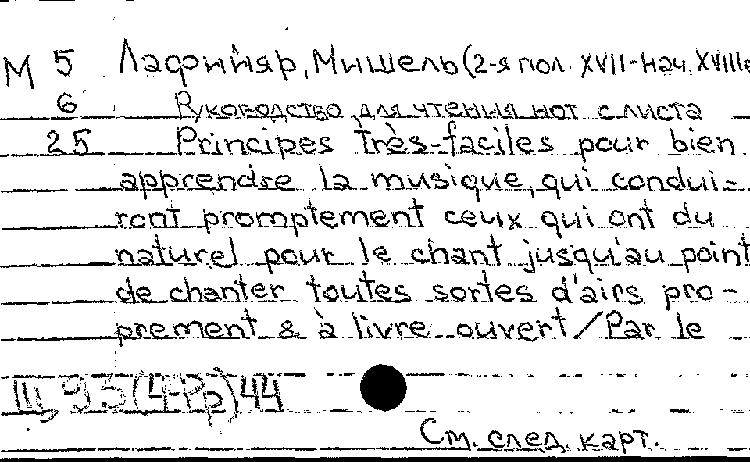 М 5 Лафийяр, Мишель (2-я пол. XVII-нач. XVIII в
6 Руководство для чтения нот с листа
25 Principes très-faciles pour bien
apprendre la musique, qui condui-
ront promptement ceux qui ont du
naturel pour le chant jusqu'au point
de chanter toutes sortes d'airs pro-
prement & à livre ouvert/Par le
Щ 95(4-Рр)44
См. след. карт.